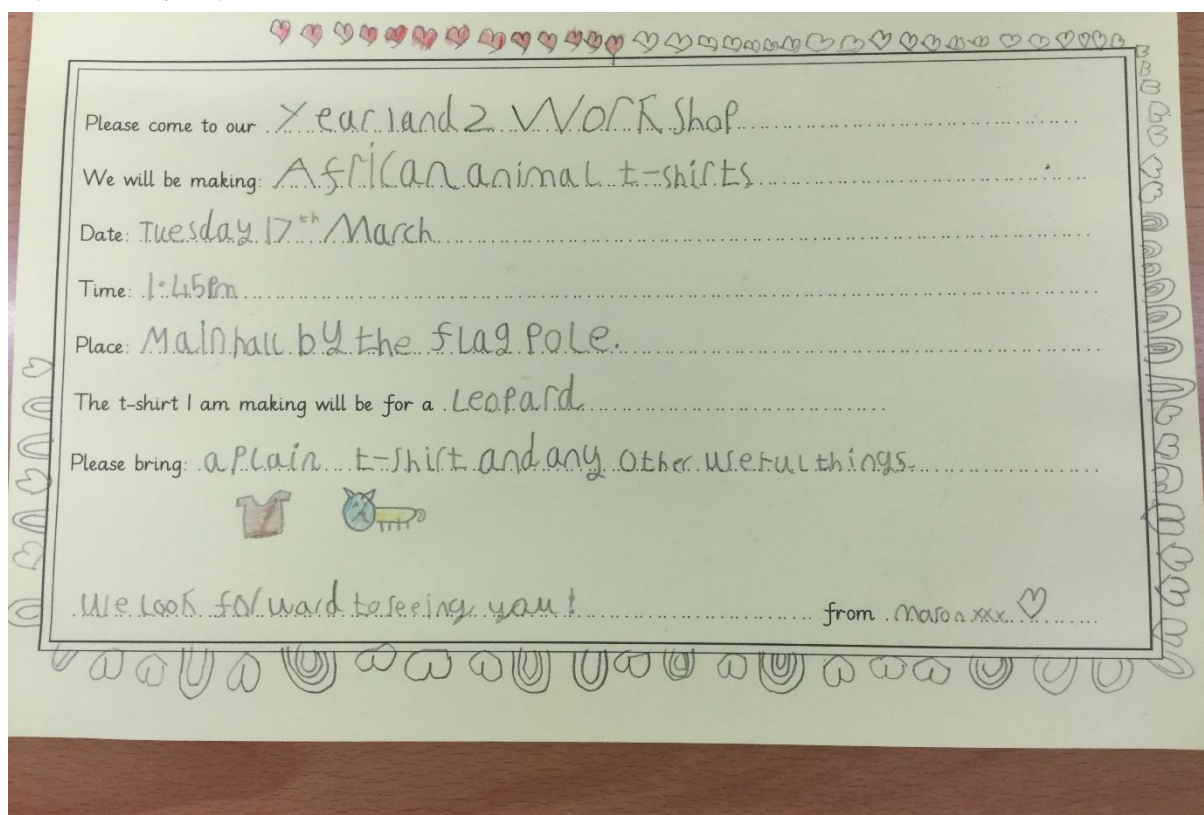 Please come to our Year 1 and 2 WorkShop
We will be making: African animal t-shirts
Date: Tuesday 17th March
Time: 1:45pm
Place: Main hall by the flag pole.
The t-shirt I am making will be for a Leopard
Please bring: a plain t-shirt and any other useful things.
We look forward to seeing you! from Mason xxx